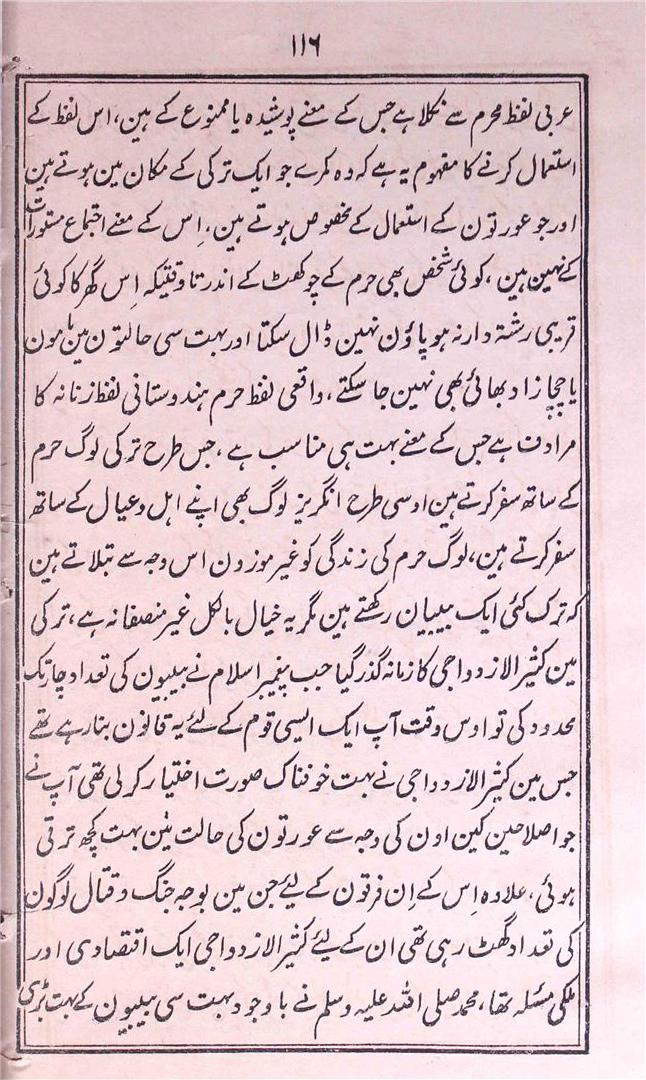 ۱۱۶
عربی لفظ محرم سے نکلا ہے جس کے معنے پوشیدہ یا ممنوع کے ہین، اس لفظ کے
استعمال کرنے کا مفہوم یہ ہے کہ وہ کمرے جو ایک ترکی کے مکان مین ہوتے ہین
اور جو عورتون کے استعمال کے مخصوص ہوتے ہین، اِس کے معنے اجتماع مستورات
کے نہین ہین، کوئی شخص بھی حرم کے چوکھٹ کے اندر تا وقتیکہ اِس گھر کا کوئی
قریبی رشتہ دار نہ ہو پاؤن نہین ڈال سکتا اور بہت سی حالتون مین مامون
یا چچا زاد بھائی بھی نہین جا سکتے، واقعی لفظ حرم ہندوستانی لفظ زنانہ کا
مرادف ہے جس کے معنے بہت ہی مناسب ہے، جس طرح ترکی لوگ حرم
کے ساتھ سفر کرتے ہین اوسی طرح انگریز لوگ بھی اپنے اہل و عیال کے ساتھ
سفر کرتے ہین، لوگ حرم کی زندگی کو غیر موزون اس وجہ سے بتلاتے ہین
کہ ترک کئی ایک بیبیان رکھتے ہین مگر یہ خیال بالکل غیر منصفانہ ہے، ترکی
مین کثیر الازدواجی کا زمانہ گذر گیا جب پیغمبر اسلام نے بیبیون کی تعداد چار تک
محدود کی تو اوس وقت آپ ایک ایسی قوم کے لئے یہ قانون بنا رہے تھے
جس مین کثیر الازدواجی نے بہت خوفناک صورت اختیار کر لی تھی آپ نے
جو اصلاحین کین اون کی وجہ سے عورتون کی حالت مین بہت کچھ ترقی
ہوئی، علاوہ اِس کے اِن فرقون کے لیئے جن مین بوجہ جنگ و قتال لوگون
کی تعداد گھٹ رہی تھی ان کے لیئے کثیر الازدواجی ایک اقتصادی اور
ملکی مسئلہ تھا، محمد صلی اللہ علیہ وسلم نے باوجود بہت سی بیبیون کے بہت بڑی